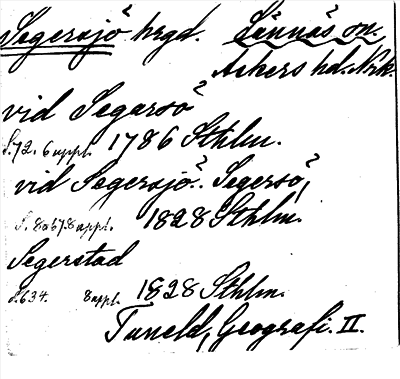 Segersjö hrgd. Lännäs sn.
Askers hd. Nrk.
vid Segersö
s. 72. 6 uppl. 1786 Sthlm.
vid Segersjö. Segersö,
s. 8 uppl. 1828 Sthlm.
Segerstad
s. 634. 8 uppl. 1828 Sthlm.
Tuneld, Geografi. II.